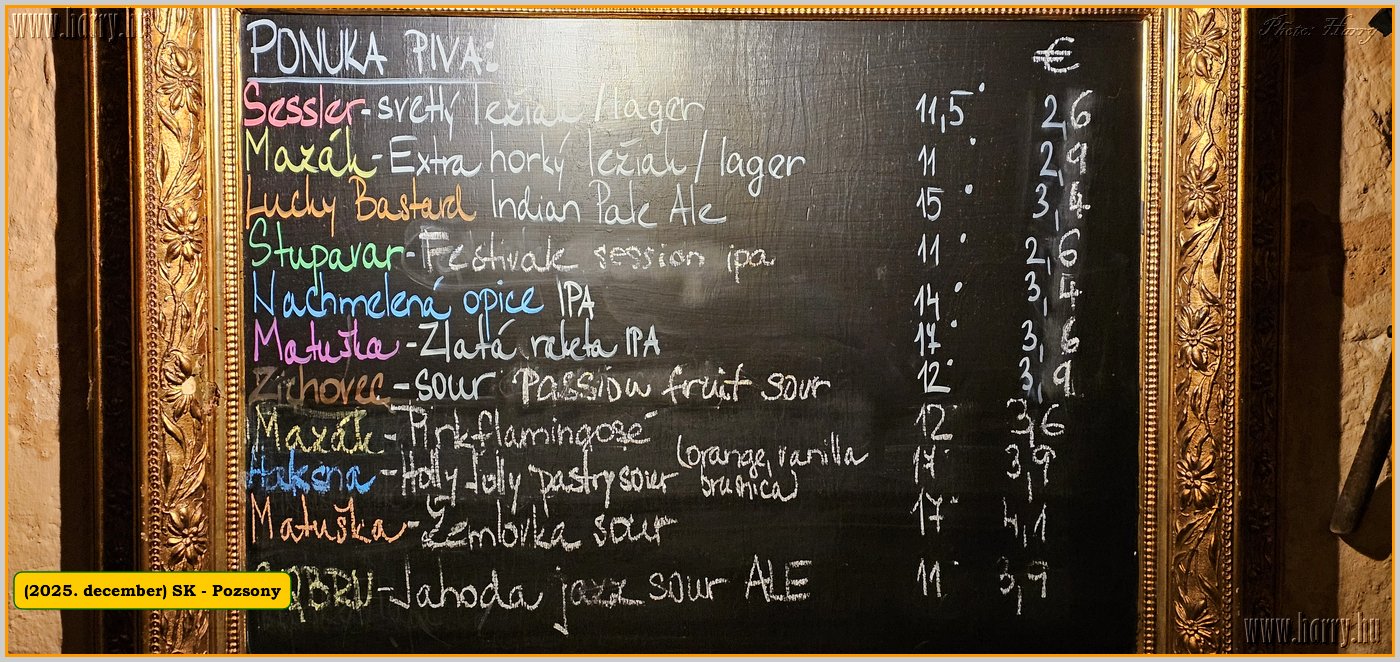 www.harry.hu
Photo: Harry
PONUKA PIVA: €
Sessler - svetlý ležiak / lager 11,5° 2,6
Mazák - Extra horký ležiak / lager 11° 2,9
Lucky Bastard Indian Pale Ale 15° 3,4
Stupavar - Festivale session ipa 11° 2,6
Nachmelená opice IPA 14° 3,4
Matuška - Zlatá raketa IPA 17° 3,6
Zichovec - sour Passion fruit sour 12° 3,9
Mazák - Pinkflamingosé 12° 3,6
Haksna - Holly Jolly pastry sour (orange, vanilla brusnica) 17° 3,9
Matuška - Žemlovka sour 17° 4,1
- Jahoda jazz sour ALE 11° 3,9
(2025. december) SK - Pozsony
www.harry.hu